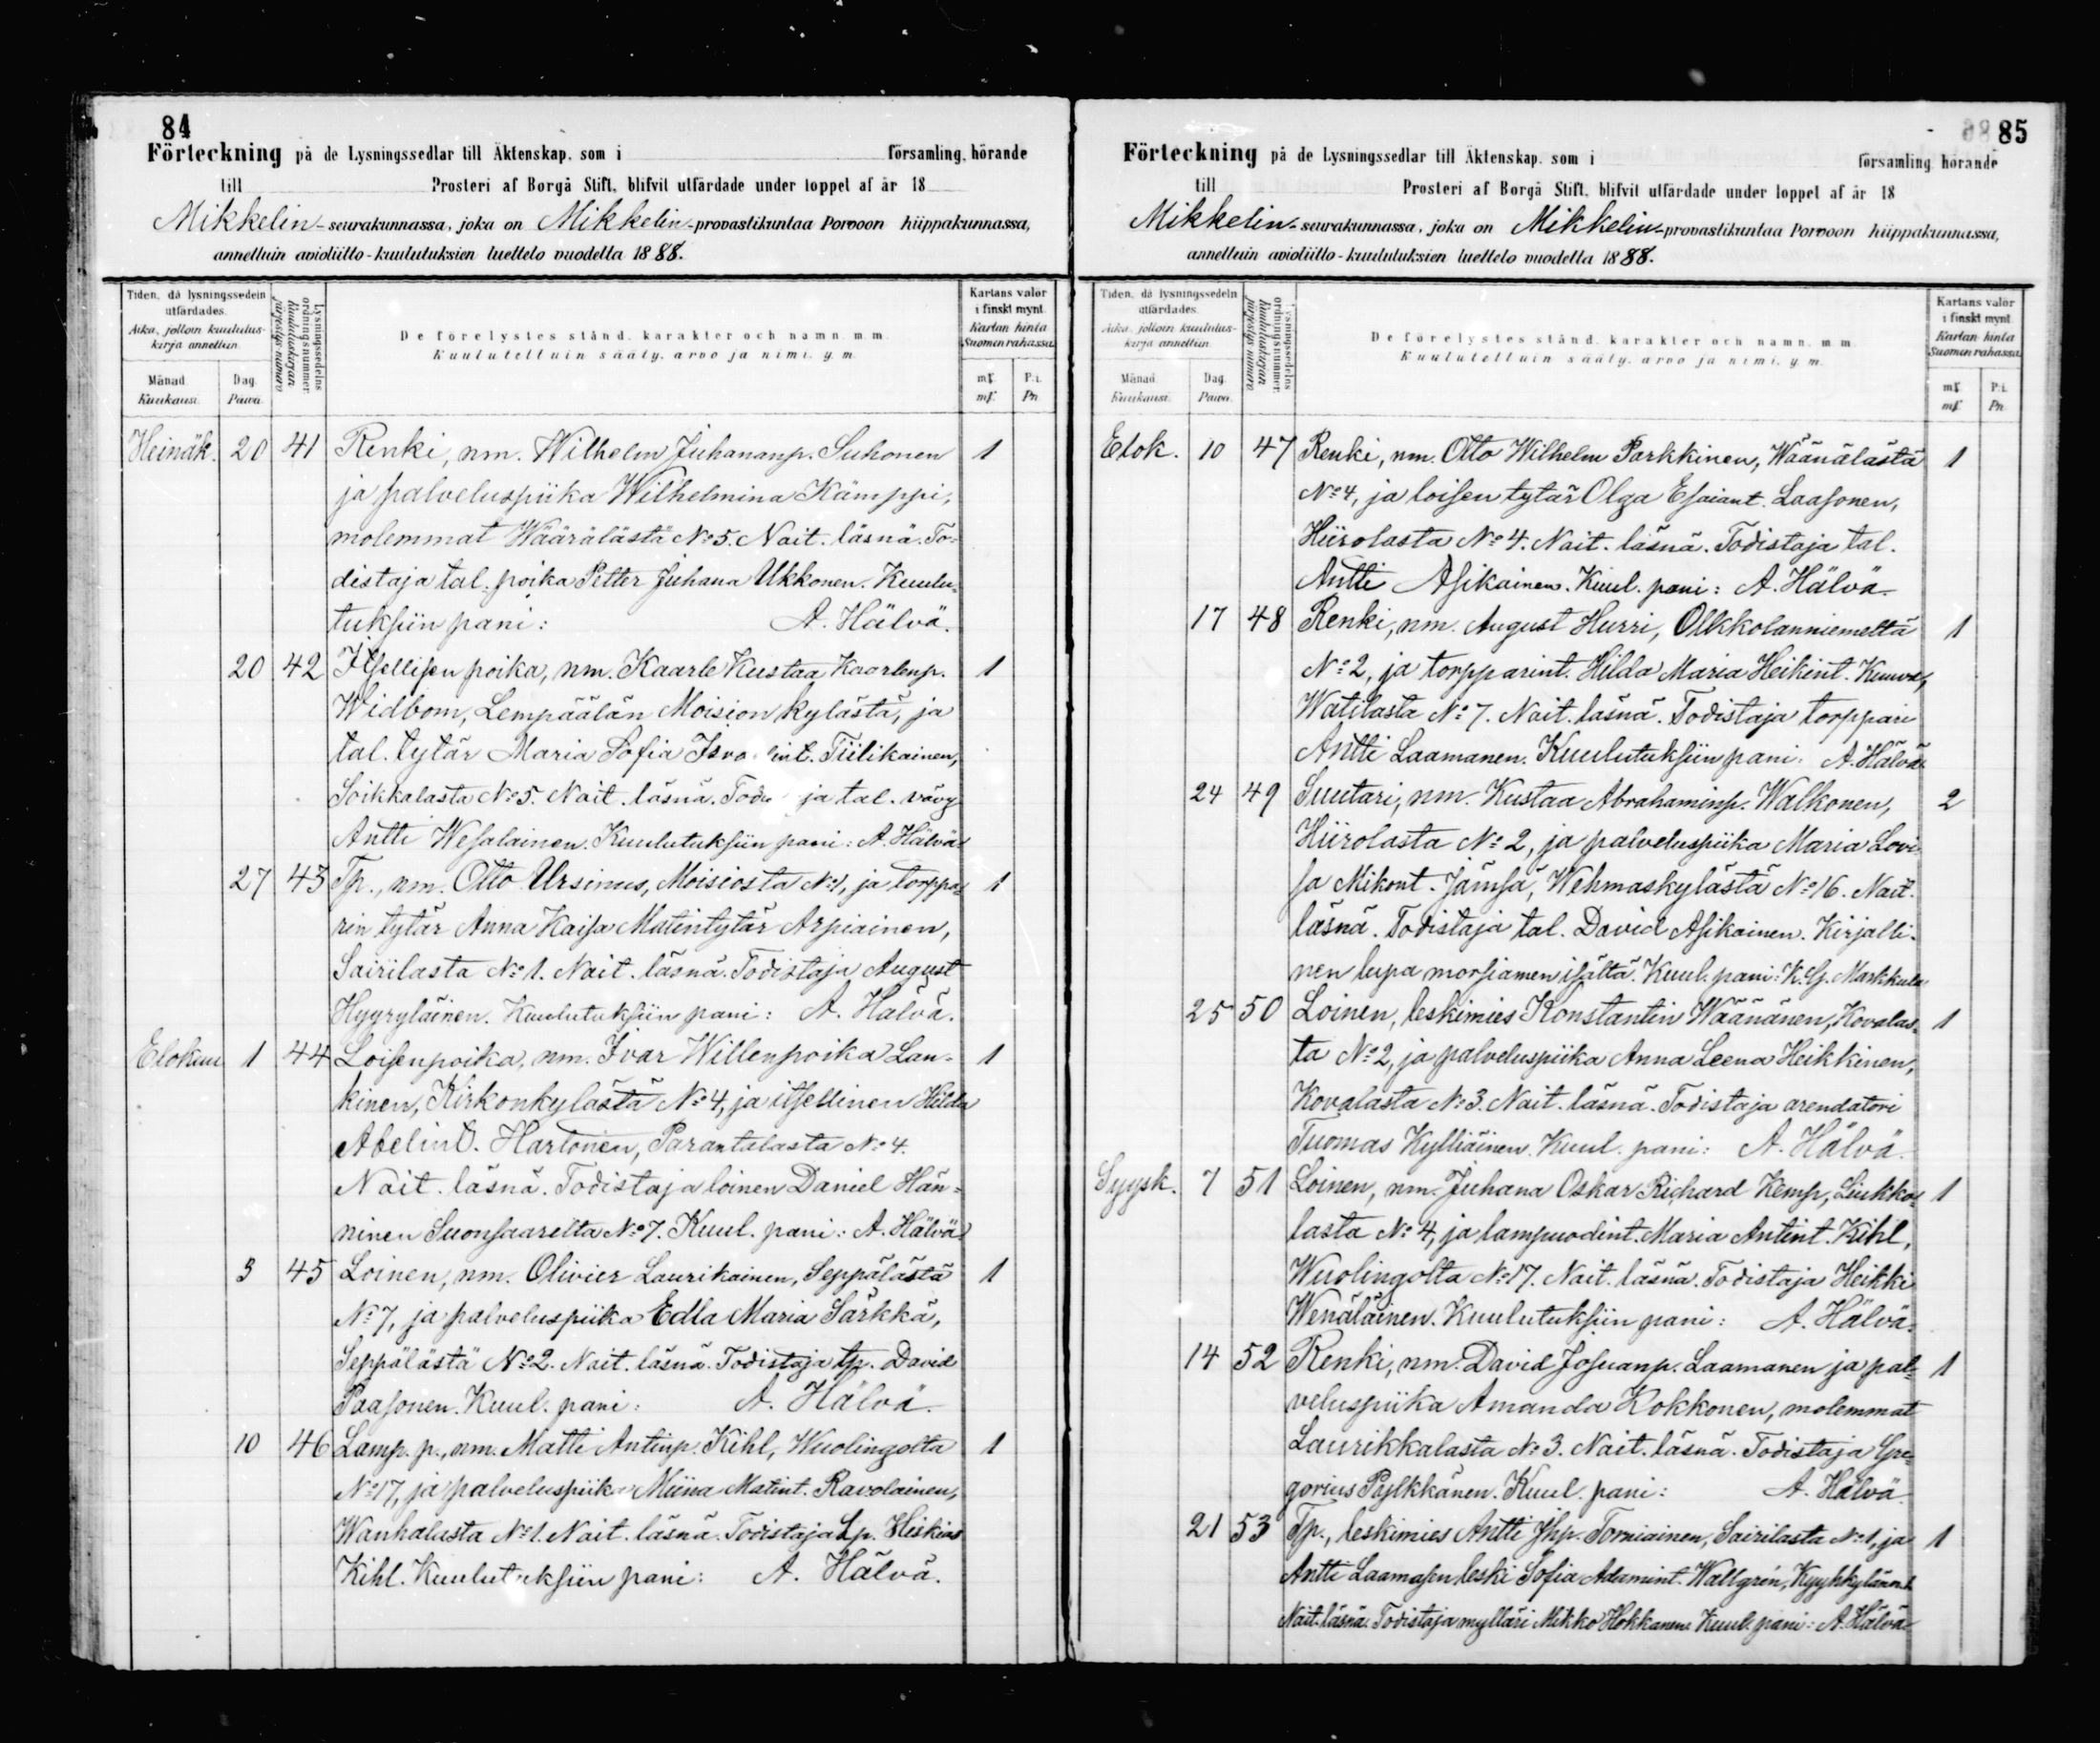 84
Förteckning på de Lysningssedlar till Äktenskap, som i församling, hörande
till Prosteri af Borgå Stift, blifvit utfärdade under loppet af år 18
Mikkelin-seurakunnassa, joka on Mikkelin-provastikuntaa Porvoon hiippakunnassa,
annettuin avioliitto-kuulutuksien luettelo vuodelta 1888.
Tiden, då lysningssedeln utfärdades.
Aika, jolloin kuulutus-kirja annettiin.
Månad. Kuukausi.
Dag. Päivä.
Lysningssedelns ordningsnummer.
Kuulutuskirjan järjestys-numero
De förelystes stånd, karakter och namn m. m.
Kuulutettuin sääty, arvo ja nimi, y. m.
Kartans valör i finskt mynt.
Kartan hinta Suomen rahassa.
mf. P:i.
mf. Pn.
Heinäk. 20 41 Renki, nm. Wilhelm Juhananp. Suhonen 1
ja palveluspiika Wilhelmina Kämppi,
molemmat Wäärälästä No 5. Nait. läsnä. To-
distaja tal. poika Petter Juhana Ukkonen. Kuulu-
tuksiin pani: A. Hälvä.
20 42 Itsellisen poika, nm. Kaarle Kustaa Kaarlenp. 1
Widbom, Lempäälän Moision kylästä, ja
tal. tytär Maria Sofia Tiilikainen,
Soikkalasta No 5. Nait. läsnä. ja tal. vävy
Antti Wesalainen. Kuulutuksiin pani: A. Hälvä.
27 43 Tp., nm. Otto Ursinus, Moisiosta No 1, ja torppa- 1
rin tytär Anna Kaisa Matintytär Arpiainen,
Sairilasta No 1. Nait. läsnä. Todistaja August
Hyyryläinen. Kuulutuksiin pani: A. Hälvä.
Elokuu 1 44 Loisenpoika, nm. Ivar Willenpoika Lau- 1
kinen, Kirkonkylästä No 4, ja itsellinen Hilda
Abelint. Hartonen, Parantalasta No 4.
Nait. läsnä. Todistaja loinen Daniel Hän-
ninen Suonsaarelta No 7. Kuul. pani: A. Hälvä
3 45 Loinen, nm. Olivier Laurikainen, Seppälästä 1
No 7, ja palveluspiika Edla Maria Särkkä,
Seppälästä No 2. Nait. läsnä. Todistaja tp. David
Paasonen. Kuul. pani: A. Hälvä.
10 46 Lamp. p., nm. Matti Antinp. Kihl, Wuolingolta 1
No 17, ja palveluspiika Miina Matint. Ravolainen,
Wanhalasta No 1. Nait. läsnä. Todistaja Lp. Heskias
Kihl. Kuulutuksiin pani: A. Hälvä.
85
Förteckning på de Lysningssedlar till Äktenskap, som i församling hörande
till Prosteri af Borgå Stift, blifvit utfärdade under loppet af år 18
Mikkelin-seurakunnassa, joka on Mikkelin-provastikuntaa Porvoon hiippakunnassa,
annettuin avioliitto-kuulutuksien luettelo vuodelta 1888.
Tiden, då lysningssedeln utfärdades.
Aika, jolloin kuulutus-kirja annettiin.
Månad. Kuukausi.
Dag. Päivä.
Lysningssedelns ordningsnummer.
Kuulutuskirjan järjestys-numero
De förelystes stånd, karakter och namn m. m.
Kuulutettuin sääty, arvo ja nimi, y. m.
Kartans valör i finskt mynt.
Kartan hinta Suomen rahassa.
mf. P:i.
mf. Pn.
Elok. 10 47 Renki, nm. Otto Wilhelm Parkkinen, Wäänälästä 1
No 4, ja loisen tytär Olga Esaiant. Laasonen,
Hiirolasta No 4. Nait. läsnä. Todistaja tal.
Antti Asikainen. Kuul. pani: A. Hälvä.
17 48 Renki, nm. August Hurri, Olkkolanniemeltä 1
No 2, ja torpparint. Hilda Maria Heikint.
Watilasta No 7. Nait. läsnä. Todistaja torppari
Antti Laamanen. Kuulutuksiin pani: A. Hälvä.
24 49 Suutari, nm. Kustaa Abrahaminp. Walkonen, 2
Hiirolasta No 2, ja palveluspiika Maria Lovi-
sa Mikont. Jämsä, Wehmaskylästä No 16. Nait.
läsnä. Todistaja tal. David Asikainen. Kirjalli-
nen lupa morsiamen isältä. Kuul. pani: K. G. Markkula.
25 50 Loinen, leskimies Konstantin Wäänänen, Kovalas- 1
ta No 2, ja palveluspiika Anna Leena Heikkinen,
Kovalasta No 3. Nait. läsnä. Todistaja arendatori
Tuomas Kylliäinen. Kuul. pani: A. Hälvä.
Syysk. 7 51 Loinen, nm. Juhana Oskar Richard Kemp, Liukko- 1
lasta No 4, ja lampuodint. Maria Antint. Kihl,
Wuolingolta No 17. Nait. läsnä. Todistaja Heikki
Wenäläinen. Kuulutuksiin pani: A. Hälvä.
14 52 Renki, nm. David Josuanp. Laamanen ja pal- 1
veluspiika Amanda Kokkonen, molemmat
Laurikkalasta No 3. Nait. läsnä. Todistaja Gre-
gorius Pylkkänen. Kuul. pani: A. Hälvä
21 53 Tp., leskimies Antti Jhp. Torniainen, Sairilasta No 1, ja 1
Antti Laamasen leski Sofia Adamint. Wallgrén,
Nait. läsnä. Todistaja mylläri Mikko Hokkanen. Kuul. pani: A. Hälvä.